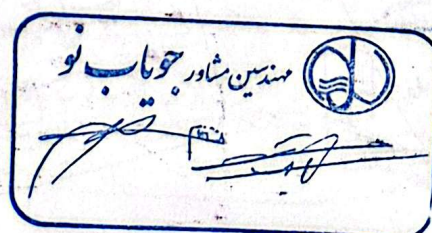 مهندسین مشاور جویاب نو